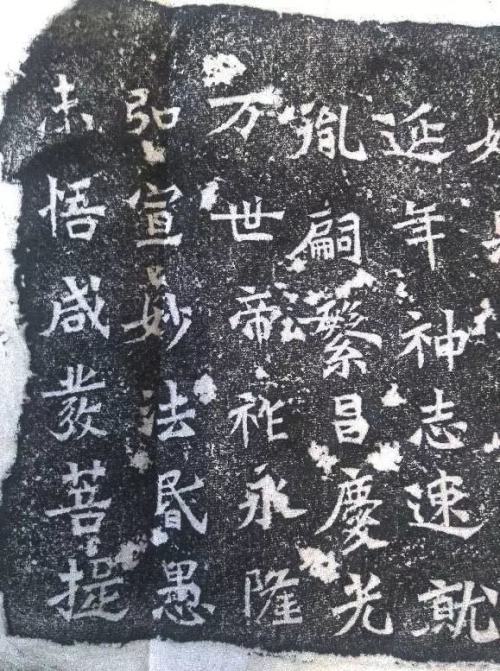 延年神志速就
胤嗣繁昌慶光
万世帝祚永隆
弘宣妙法昬愚
未悟咸發菩提